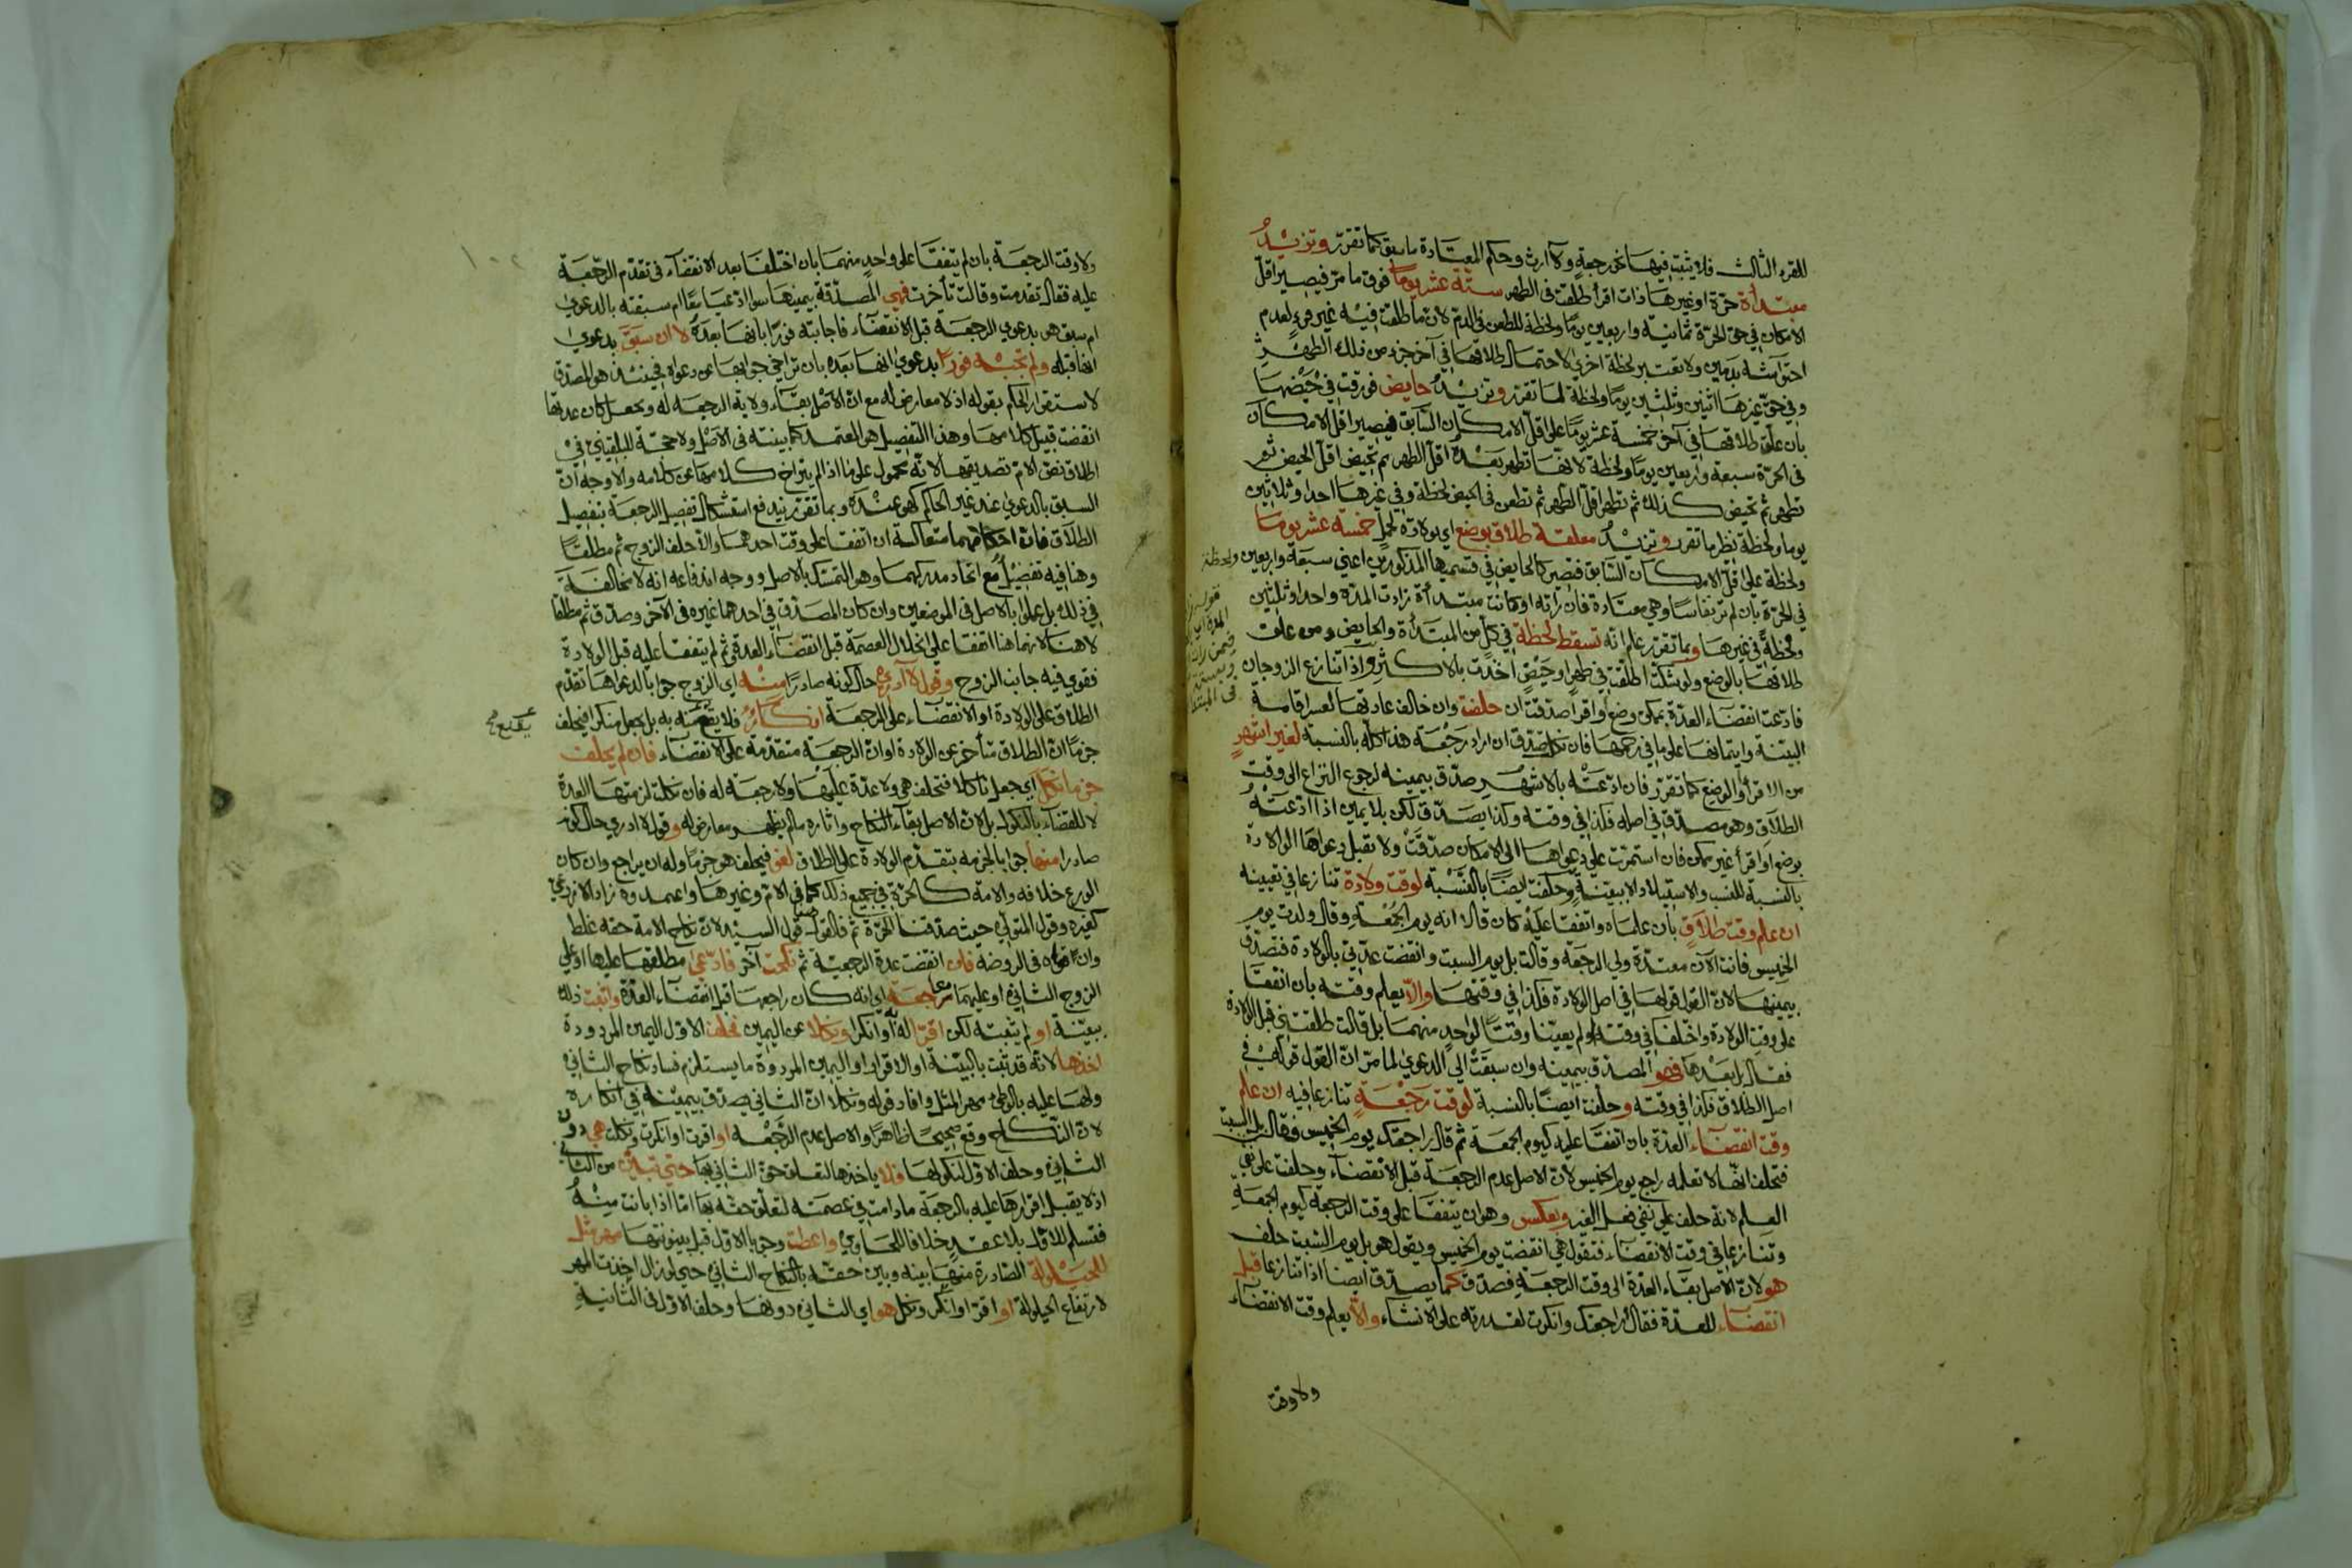 للقرء الثالث فلا يثبت فيها نحو رجعة ولا ارث وحكم المعتادة ما سبق كما تقرر وتزيد
مبتدأة حرة او غيرها ذات اقرأ طلقت في الطهر ستة عشر يوما فوق ما مر فيصير اقل
الامكان في حق الحرة ثمانية واربعين يوما ولحظة للطعن في الدم لان ما طلقت فيه غير قرء لعدم
احتوآشه بدمين ولا تعتبر لحظة اخرى لاحتمال طلاقها في آخر جزء من ذلك الطهر
وفي حق غيرها اثنين وثلثين يوما ولحظة لما تقرر وتزيد حايض فورقت في حيضها
بان علق طلاقها في آخره خمسة عشر يوما على اقل الامكان السابق فيصير اقل الامكان
في الحرة سبعة واربعين يوما ولحظة لانها تطهر بعده اقل الطهر ثم تحيض اقل الحيض ثم
تطهر ثم تحيض كذلك ثم تطهر اقل الطهر ثم تطعن في الحيض لحظة وفي غيرها احدا وثلاثين
يوما ولحظة نظر ما تقرر وتزيد معلقة طلاق بوضع اي بولادة لحمل خمسة عشر يوما
ولحظة على اقل الامكان السابق فتصير كالحايض في قسميها المذكورين اعني سبعة واربعين ولحظة
في الحرة بان لم تر نفاسا وهي معتادة فان رأته او كانت مبتدأة زادت المدة واحدا وثلثين
ولحظة في غيرها وبما تقرر علم انه تسقط لحظة في كل من المبتدأة والحايض ومن علق
طلاقها بالوضع ولو شكت اطلقت في طهر او حيض اخذت بالاكثر واذا تنازع الزوجان
فادعت انقضاء العدة بممكن وضع او اقرأ صدقت ان حلفت وان خالف عادتها لعسر اقامة
البينة وايتمانها على ما في رحمها فان نكلت صدق ان اراد رجعة هذا كله بالنسبة لغير اشهر
من الاقرأ والوضع كما تقرر فان ادعته بالاشهر صدق بيمينه لرجوع النزاع الى وقت
الطلاق وهو مصدق في اصله فكذا في وقته وكذا يصدق لكن بلا يمين اذا ادعته
بوضع او اقرأ غير ممكن فان استمرت على دعواها الى الامكان صدقت ولا تقبل دعواها الولادة
بالنسبة للنسب والاستيلاد الا ببينة وحلفت ايضا بالنسبة لوقت ولادة تنازعا في تعيينه
ان علم وقت طلاق بان علماه واتفقا عليه كان قالا انه يوم الجمعة وقال ولدت يوم
الخميس فانت الآن معتدة ولي الرجعة وقالت بل يوم السبت وانقضت عدتي بالولادة فتصدق
بيمينها لان القول قولها في اصل الولادة فكذا في وقتها والا يعلم وقته بان اتفقا
على وقت الولادة واختلفا في وقته او لم يعينا وقتا لواحد منهما بل قالت طلقتني قبل الولادة
فقال بل بعدها فهو المصدق بيمينه وان سبقت الى الدعوى لما مر ان القول قوله في
اصل الطلاق فكذا في وقته وحلفت ايضا بالنسبة لوقت رجعة تنازعا فيه ان علم
وقت انقضاء العدة بان اتفقا عليه كيوم الجمعة ثم قال راجعتك يوم الخميس فقالت بل السبت
فتحلف انها لا تعلمه راجع يوم الخميس لان الاصل عدم الرجعة قبل الانقضاء وحلفت على نفي
العلم لانه حلف على نفي فعل الغير وبعكس وهو ان يتفقا على وقت الرجعة كيوم الجمعة
وتنازعا في وقت الانقضاء فتقول هي انقضت يوم الخميس ويقول هو بل يوم السبت حلف
هو لان الاصل بقاء العدة الى وقت الرجعة فصدق كما يصدق ايضا اذا تنازعا قبل
انقضاء للعدة فقال راجعتك وانكرت لقدرته على الانشاء والا يعلم وقت الانقضاء
ولا وقت
ولا وقت الرجعة بان لم يتفقا على واحد منهما بان اختلفا بعد الانقضاء في تقدم الرجعة
عليه فقال تقدمت وقالت تأخرت فهي المصدقة بيمينها سوا ادعيا معا ام سبقته بالدعوى
ام سبق هو بدعوى الرجعة قبل الانقضاء فاجابته فورا بانها بعده لا ان سبق بدعوى
انها قبله ولم تجبه فورا بدعوى انها بعده بان تراخى جوابها عن دعواه فحينئذ هو المصدق
لاستقرار الحكم بقوله اذ لا معارض له مع ان الاصل بقاء ولاية الرجعة له ويحمل كان عدتها
انقضت قبيل كلامها وهذا التفصيل هو المعتمد كما بينته في الاصل ولا حجة للبلقيني في
اطلاق نص الام تصديقها لانه محمول على ما اذا لم يتراخ كلامها عن كلامه والاوجه ان
السبق بالدعوى عند غير الحاكم كهو عنده وبما تقرر يندفع استشكال تفصيل الرجعة بتفصيل
الطلاق فان احكامهما متعاكسة ان اتفقا على وقت احدهما والا حلف الزوج ثم مطلقا
وهنا فيه تفصيل مع اتحاد مدركهما وهو التمسك بالاصل ووجه اندفاعه انه لا مخالفة
في ذلك بل عملوا بالاصل في الموضعين وان كان المصدق في احدهما غيره في الآخر وصدق ثم مطلقا
لا هنا لانهما هنا اتفقا على انحلال العصمة قبل انقضاء العدة وثم لم يتفقا عليه قبل الولادة
فقوي فيه جانب الزوج وقول لا ادري حال كونه صادرا منه اي الزوج جوابا لدعواها تقدم
الطلاق على الولادة او الانقضاء على الرجعة انكار فلا يقنع منه به بل يجعل منكرا فيحلف
جزما ان الطلاق متأخر عن الولادة او ان الرجعة متقدمة على الانقضاء فان لم يحلف
جزما نكل اي جعل ناكلا فتحلف هي ولا عدة عليها ولا رجعة له فان نكلت لزمتها العدة
لا للقضاء بالنكول بل لان الاصل بقاء النكاح واثاره ما لم يظهر معارض له وقول لا ادري حال كونه
صادرا منها جوابا لجزمه بتقدم الولادة على الطلاق لغو فيحلف هو جزما وله ان يراجع وان كان
الورع خلافه والامة كالحرة في جميع ذلك كما في الام وغيرها واعتمدوه زاد الاذرعي
كغيره وقول المتولي حيث صدقنا الحرة ثم فالقول قول السيد لان نكاح الامة حقه غلط
وان قواه في الروضة فان انقضت عدة الرجعية ثم نكحت آخر فادعى مطلقها عليها او على
الزوج الثاني او عليهما مراجعة اي انه كان راجعها قبل انقضاء العدة واثبت ذلك
ببينة او لم يثبته لكن اقرا له او انكرا ونكلا عن اليمين فحلف الاول اليمين المردودة
اخذها لانه قد ثبت بالبينة او الاقرار او اليمين المردودة ما يستلزم فساد نكاح الثاني
ولها عليه بالوطئ مهر المثل وافاد قوله ونكلا ان الثاني يصدق بيمينه في انكاره
لان النكاح وقع صحيحا ظاهرا والاصل عدم الرجعة او اقرت او انكرت ونكلت هي دون
الثاني وحلف الاول لنكولها فلا ياخذها لتعلق حق الثاني بها حتى تبين من الثاني
اذ لا يقبل اقرارها عليه بالرجعة ما دامت في عصمته لتعلق حقه بها اما اذا بانت منه
فتسلم للاول بلا عقد خلافا للحاوي واعطت وجوبا الاول قبل بينونتها مهر مثل
للحيلولة الصادرة منها بينه وبين حقه بالنكاح الثاني حتى لو زال اخذت المهر
لارتفاع الحيلولة او اقر او انكر ونكل هو اي الثاني دونها وحلف الاول في الثانية